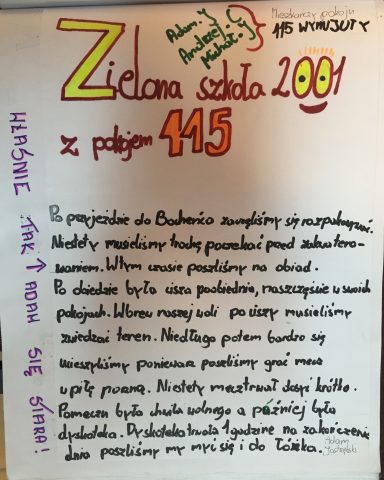 Mieszkańcy pokoju
115 WYMIJUTY
Adam.Y
Andrzej.Ć
Michał.J
Zielona szkoła 2001
z pokojem 115
WŁAŚNIE TAK ↑ ADAM SIĘ STARA!
Po przyjeździe do Bocheńca zaczęliśmy się rozpakowywać.
Niestety musieliśmy trochę poczekać przed zakwatero-
waniem. W tym czasie poszliśmy na obiad.
Po obiedzie była cisza poobiednia, naszczęście w swoich
pokojach. Wbrew naszej woli po ciszy musieliśmy
zwiedzać teren. Niedługo potem bardzo się
ucieszyliśmy ponieważ poszliśmy grać mecz
w piłę nożną. Niestety mecz trwał dosyć krótko.
Pomeczu była chwila wolnego a później była
dyskoteka. Dyskoteka trwała 1 godzinę na zakończenie
dnia poszliśmy my myć się i do łóżka.
Adam